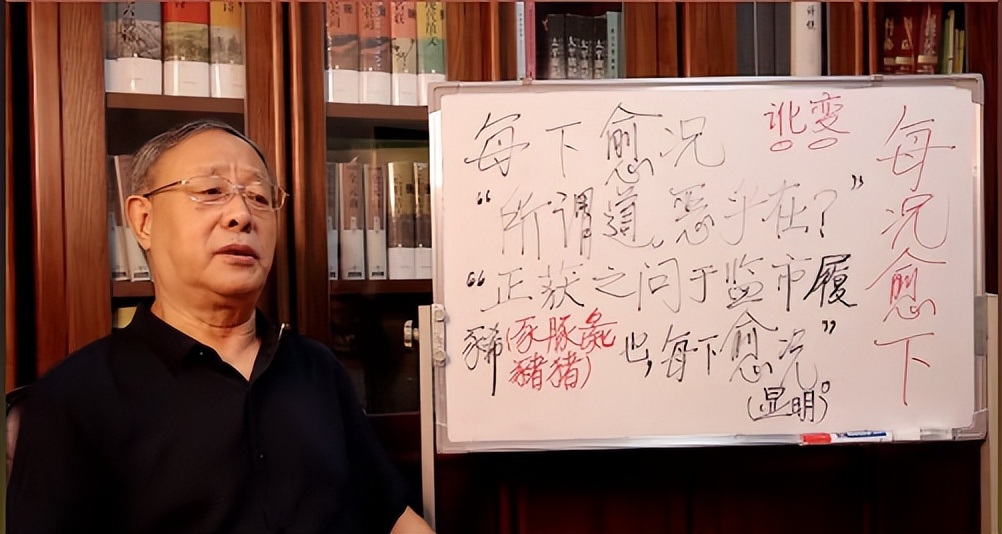 每下愈况
讹变
“所谓道,恶乎在?”
“正获之问于监市履
豨(豕豚彘
豬猪)
也,每下愈况”
(显明)
每况愈下